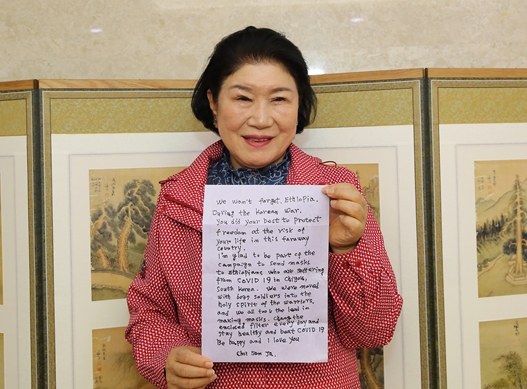 We won't forget, Ethiopia.
During the Korean War.
You did your best to protect
freedom at the risk of
your life in this faraway
country.
I'm glad to be part of the
campaign to send masks
to ethiopians who are suffering
from COVID 19 in Chigu,
South Korea. We were moved
with foot soldiers into the
holy spirit of the warriors,
and we all took the lead in
making masks. Change the
enclosed filter every day and
stay healthy and beat COVID 19
Be happy and I love you
Choi Soon Ja.